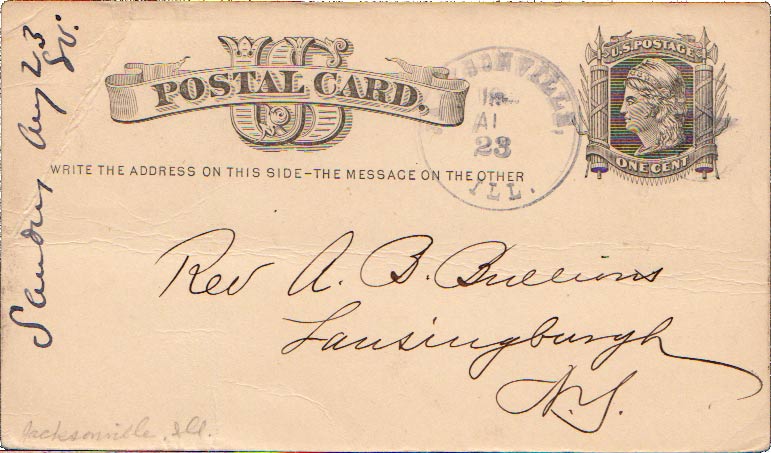 U.S. POSTAGE
US
POSTAL CARD.
ONE CENT
WRITE THE ADDRESS ON THIS SIDE–THE MESSAGE ON THE OTHER
SONVILLE,
23
ILL.
Aug 23
80.
Rev A. B. Bullions
Lansingburgh
N.Y.
Jacksonville, Ill.